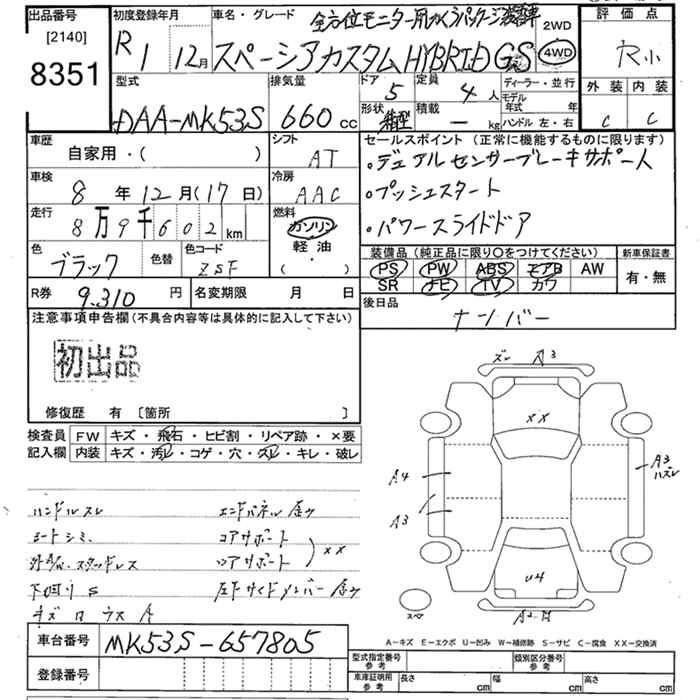 出品番号
[2140]
8351
初度登録年月
R 1 12月
車名・グレード
全方位モニター用カメラパッケージ装着車
スペーシアカスタム HYBRID GS
2WD
4WD
評価点
R小
外装 内装
C C
型式
DAA-MK53S
排気量
660 cc
ドア
5
定員
4 人
形状
箱型
積載
ー kg
ディーラー・並行
モデル年式 年
ハンドル 左・右
車歴
自家用・( )
シフト
AT
車検
8 年 12 月 (17 日)
冷房
AAC
走行
8万9千602 km
燃料
ガソリン
軽油
( )
色
ブラック
色替
色コード
ZSF
セールスポイント (正常に機能するものに限ります)
・デュアルセンサーブレーキサポート
・プッシュスタート
・パワースライドドア
装備品 (純正品に限り○をつけてください)
PS PW ABS エアB AW
SR ナビ TV カワ
新車保証書
有・無
R券
9.310 円
名変期限 月 日
後日品
ナンバー
注意事項申告欄 (不具合内容等は具体的に記入して下さい)
初出品
修復歴 有 [箇所 ]
検査員 FW キズ・飛石・ヒビ割・リペア跡・×要
記入欄 内装 キズ・汚レ・コゲ・穴・スレ・キレ・破レ
ズレ A3
××
A4
A3
A3
ハズレ
U4
スペ
ハンドルスレ エンドパネル歪み
シートシミ コアサポート
スタッドレス ロアサポート ××
下回りS 左Fサイドメンバー歪み
A-キズ E-エクボ U-凹み W-補修跡 S-サビ C-腐食 XX-交換済
車台番号
MK53S-657805
登録番号
型式指定番号 参考
類別区分番号 参考
車庫証明用 参考 長さ cm 幅 cm 高さ cm